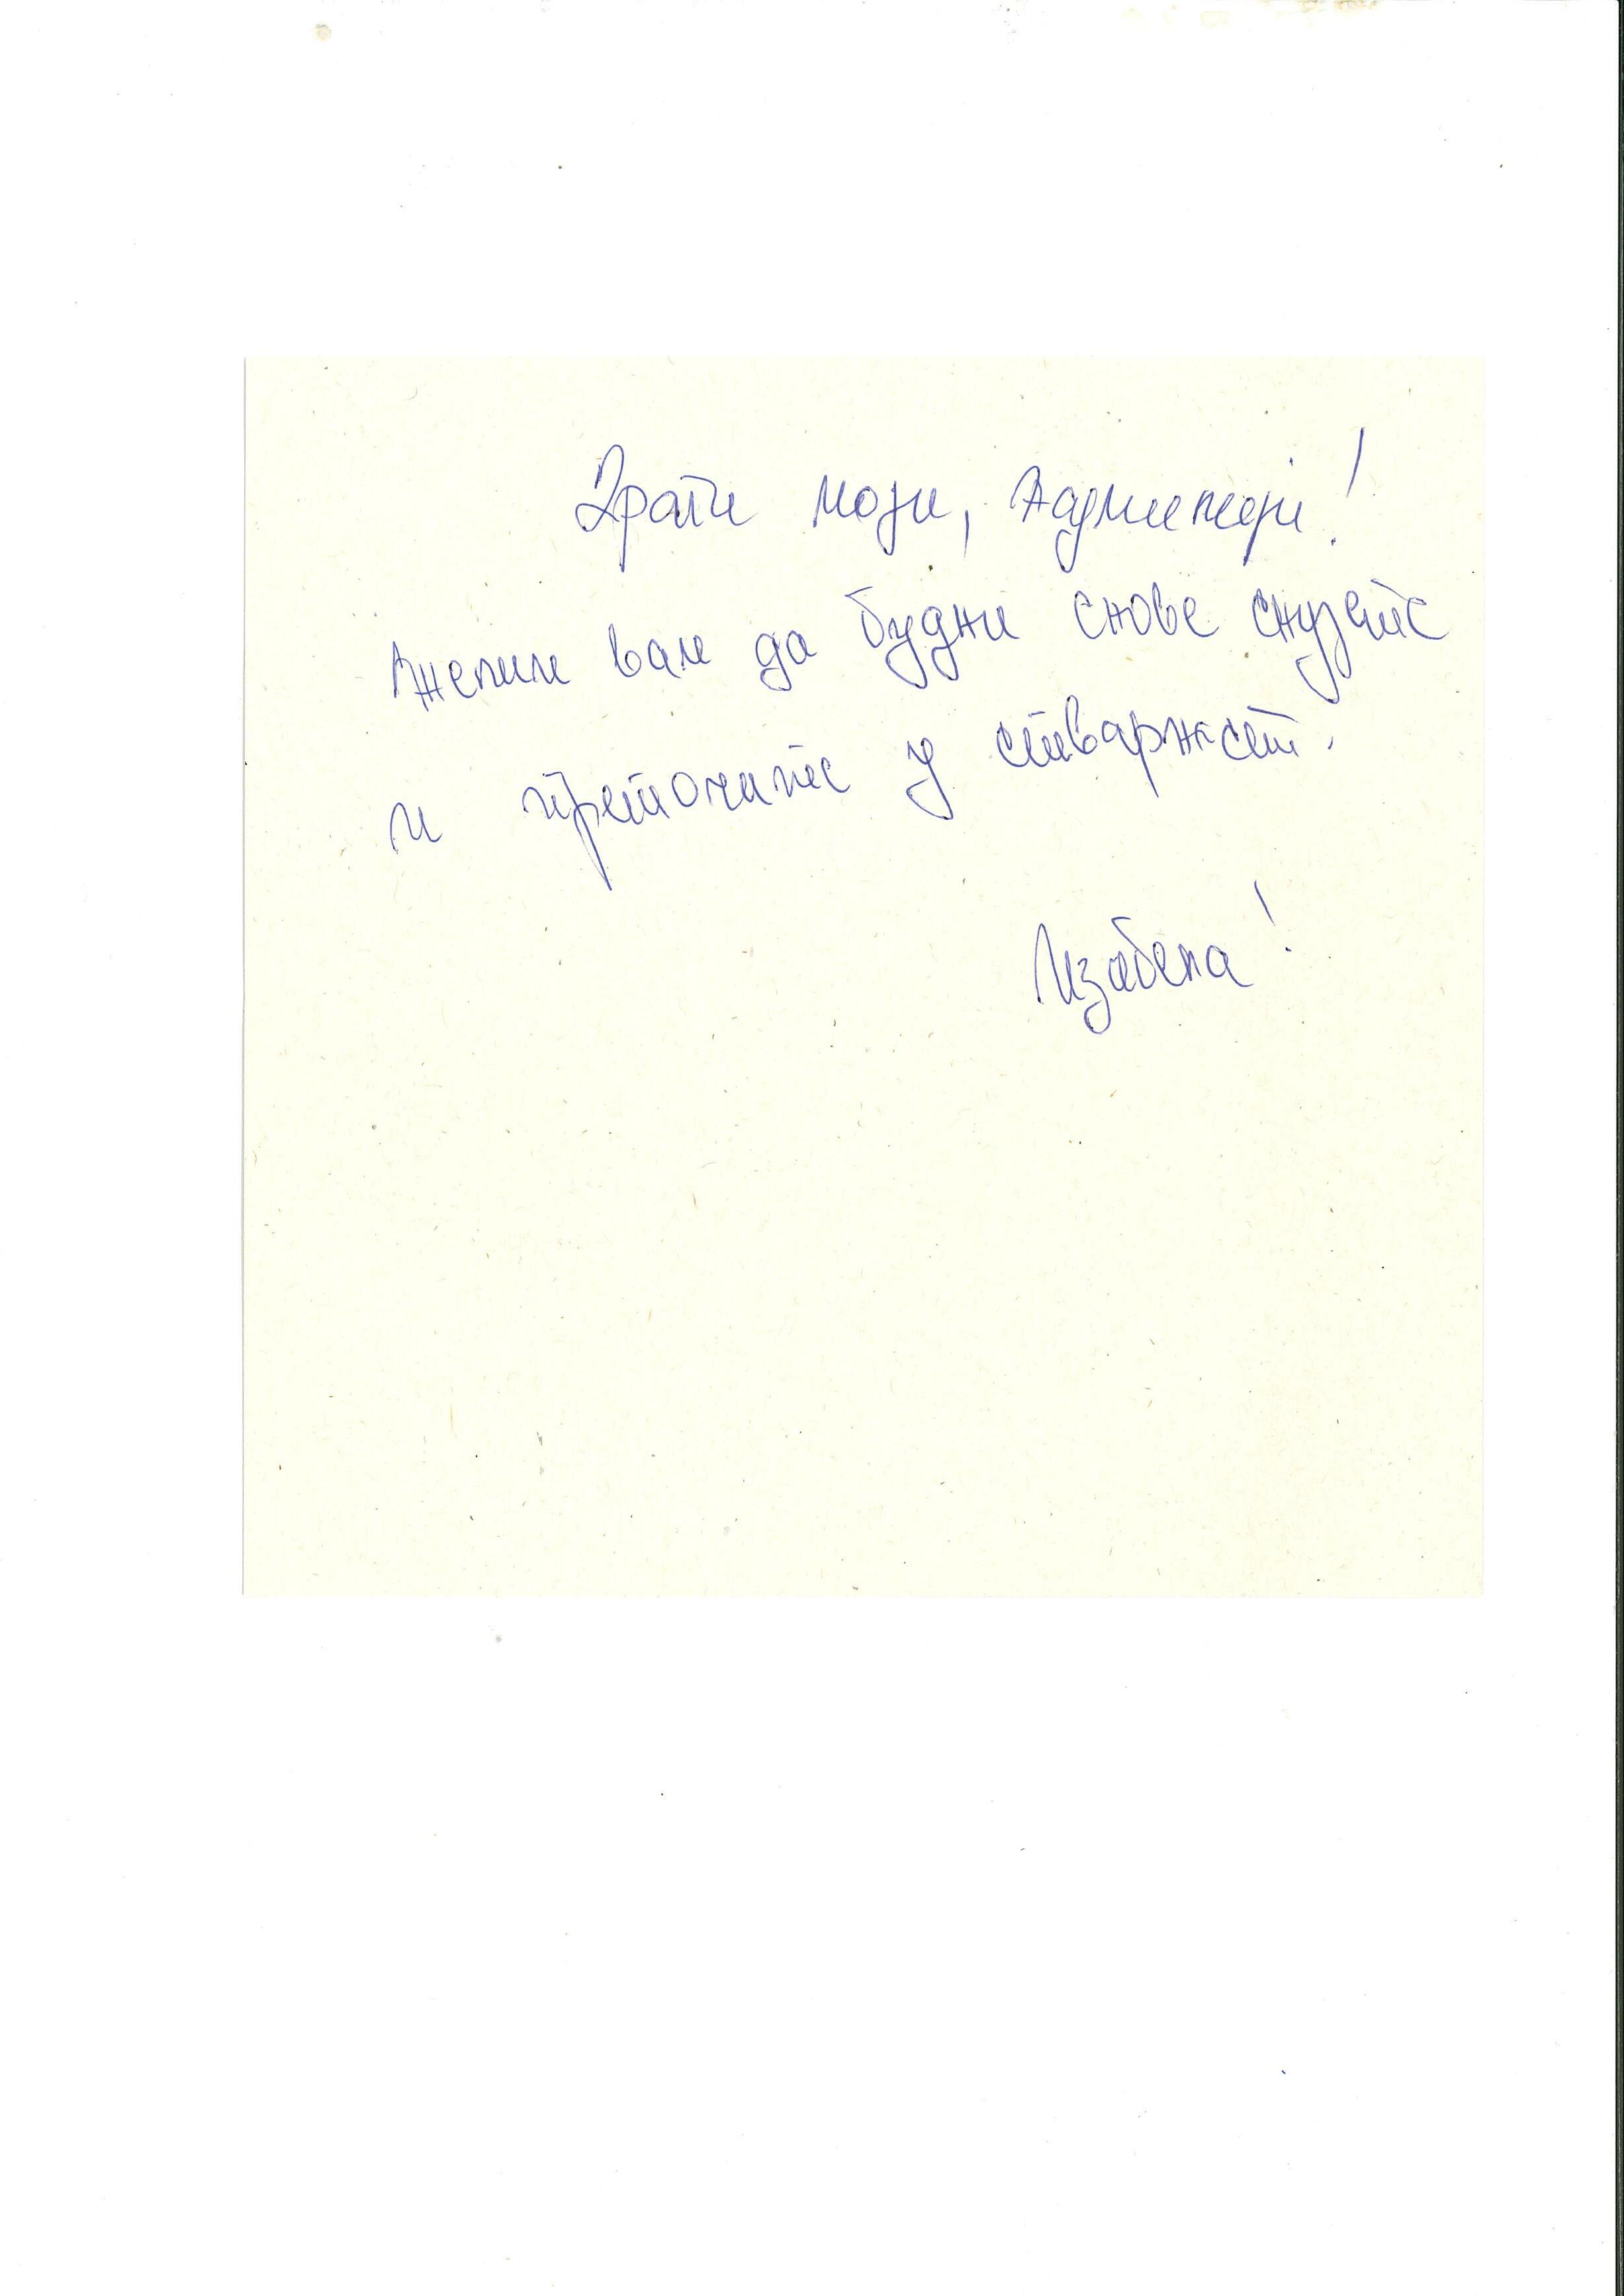 Драги моји, надмените!
Желим вам да будни снове снујете
и преточите у стварност.
Изабела!